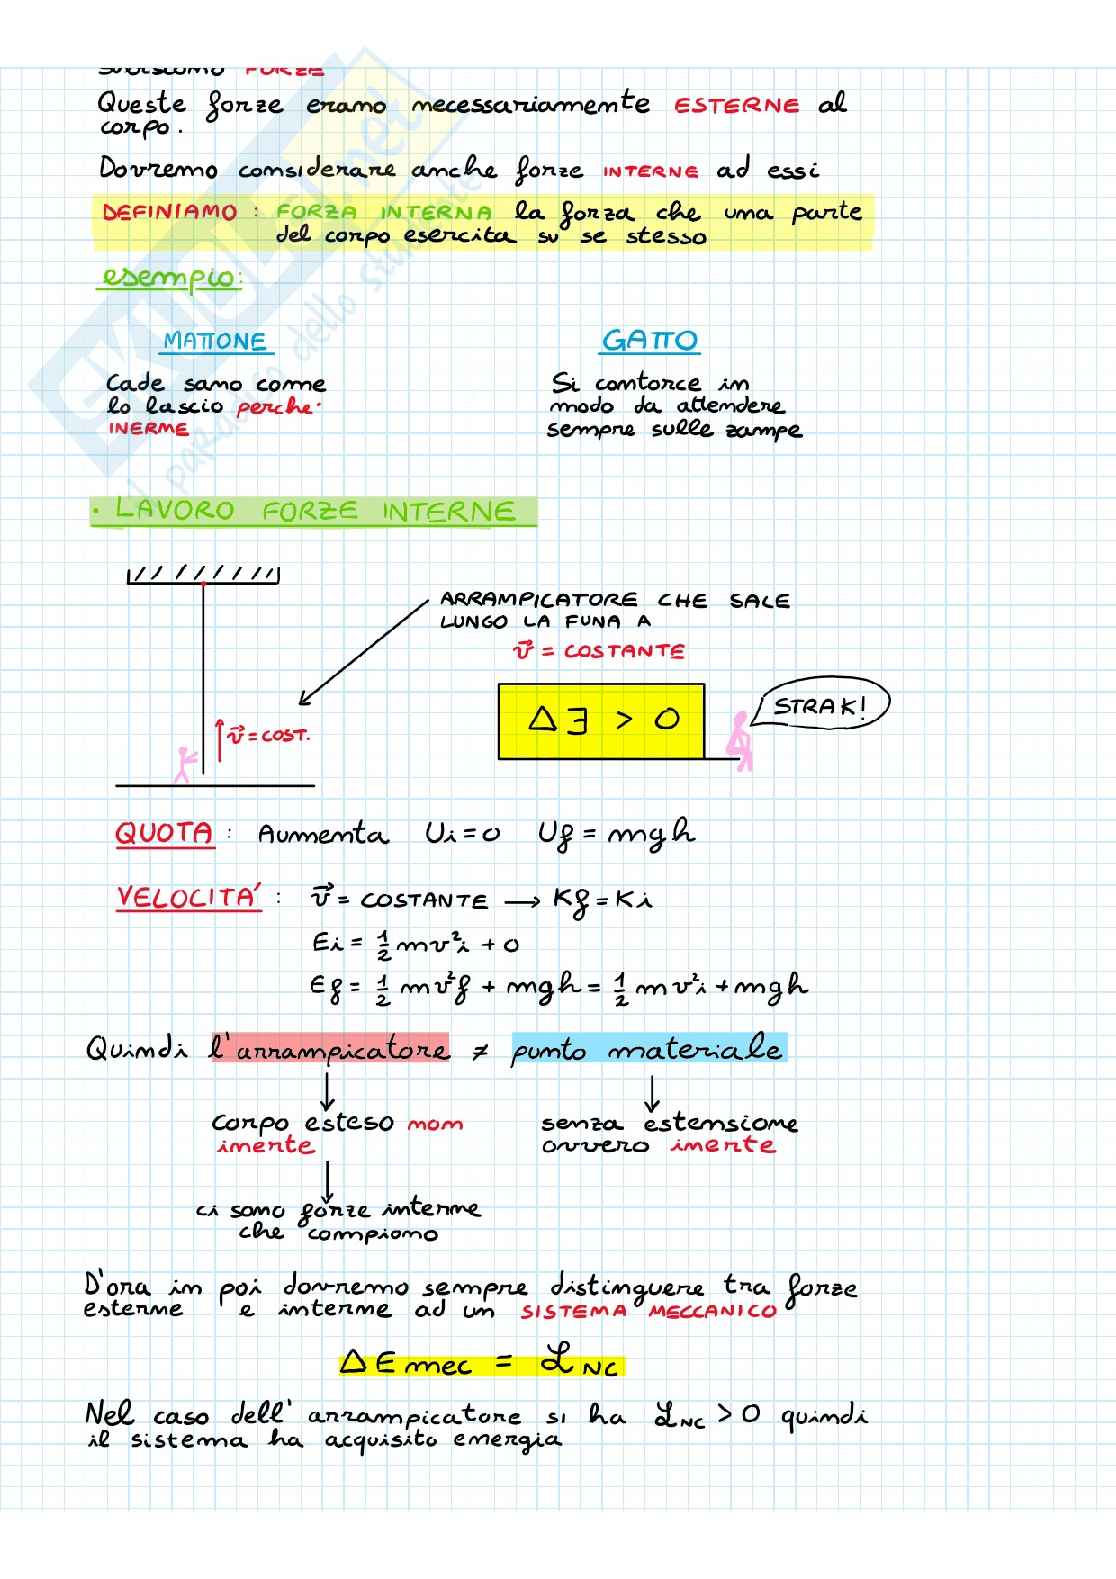 subiscono FORZE
Queste forze erano necessariamente ESTERNE al
corpo.
Dovremo considerare anche forze INTERNE ad essi
DEFINIAMO : FORZA INTERNA la forza che una parte
del corpo esercita su se stesso
esempio:
MATTONE
GATTO
Cade sano come
lo lascio perche'
INERME
Si contorce in
modo da attendere
sempre sulle zampe
· LAVORO FORZE INTERNE
ARRAMPICATORE CHE SALE
LUNGO LA FUNA A
v⃗ = COSTANTE
Δ∃ > 0
STRAK!
v⃗ = COST.
QUOTA : Aumenta Ui = 0 Uf = mgh
VELOCITA' : v⃗ = COSTANTE → Kf = Ki
Ei = 1/2 mv²i + 0
Ef = 1/2 mv²f + mgh = 1/2 mv²i + mgh
Quindi l'arrampicatore ≠ punto materiale
corpo esteso non
inerte
senza estensione
ovvero inerte
ci sono forze interne
che compiono
D'ora in poi dovremo sempre distinguere tra forze
esterne e interne ad un SISTEMA MECCANICO
ΔEmec = ℒNC
Nel caso dell'arrampicatore si ha ℒNC > 0 quindi
il sistema ha acquisito energia